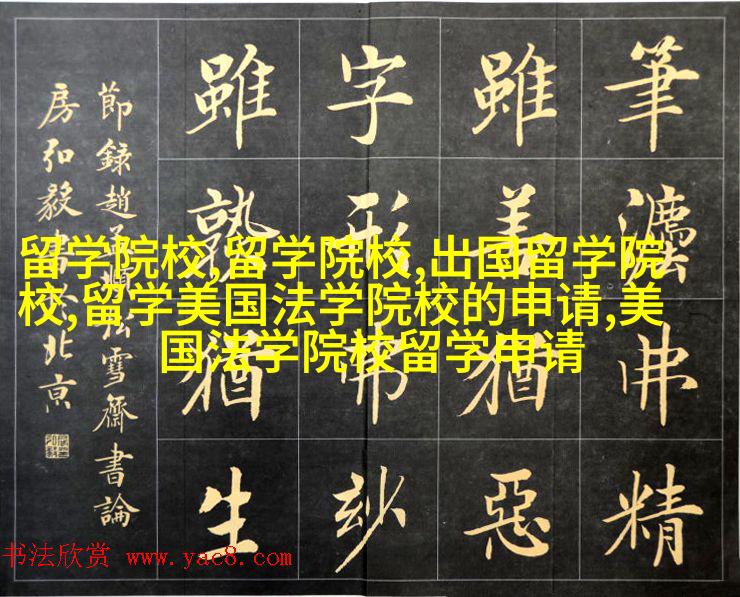 筆灋弗精
雖善猶惡
字形弗玅
雖孰猶生
節録趙孟頫松雪齋書論
房弘毅書於北京
留学院校,留学院校,出国留学院
校,留学美国法学院校的申请,美
国法学院校留学申请
书法欣赏 www.yac8.com